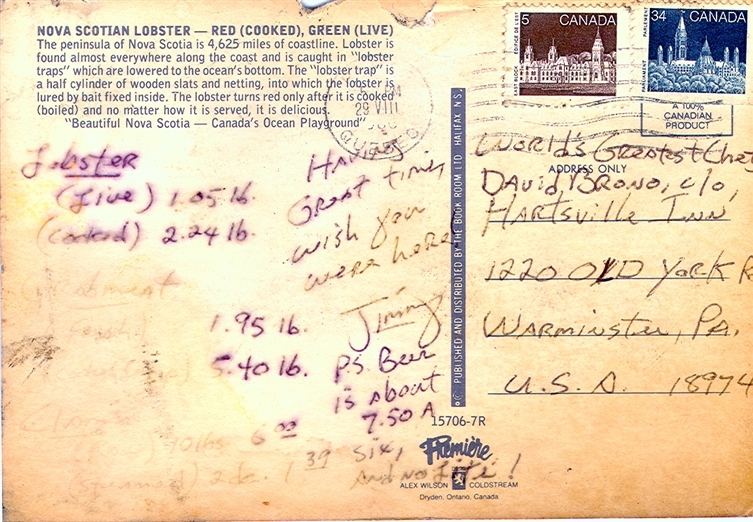 NOVA SCOTIAN LOBSTER — RED (COOKED), GREEN (LIVE)
The peninsula of Nova Scotia is 4,625 miles of coastline. Lobster is
found almost everywhere along the coast and is caught in "lobster
traps" which are lowered to the ocean's bottom. The "lobster trap" is
a half cylinder of wooden slats and netting, into which the lobster is
lured by bait fixed inside. The lobster turns red only after it is cooked
(boiled) and no matter how it is served, it is delicious.
"Beautiful Nova Scotia — Canada's Ocean Playground"
Lobster
(Live) 1.05 lb.
(Cooked) 2.24 lb.
1.95 lb.
5.40 lb.
6 00
2 dz. 1 39
Having
Great time,
wish you
were here!
Jimmy
P.S. Beer
is about
7.50 A
six,
And no Lite!
29 VIII
© PUBLISHED AND DISTRIBUTED BY THE BOOK ROOM LTD. HALIFAX N.S.
5 CANADA
EAST BLOCK ÉDIFICE DE L'EST
34 CANADA
PARLIAMENT PARLEMENT
A 100%
CANADIAN
PRODUCT
ADDRESS ONLY
World's Greatest Chef
David Bruno, c/o,
Hartsville Inn
1220 Old York R
Warminster, Pa.
U.S.A. 18974
15706-7R
Première
ALEX WILSON COLDSTREAM
Dryden, Ontario, Canada